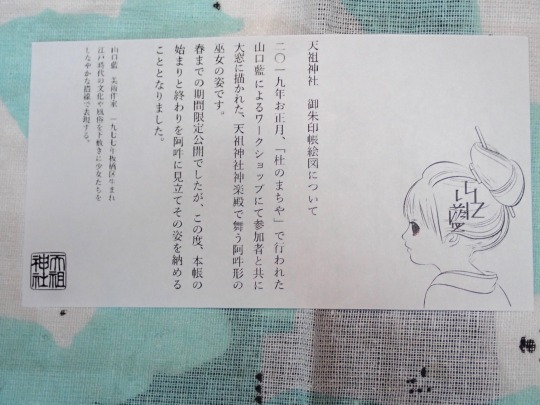 天祖神社　御朱印帳絵図について
二〇一九年お正月、「杜のまちや」で行われた
山口藍によるワークショップにて参加者と共に
大窓に描かれた、天祖神社神楽殿で舞う阿吽形の
巫女の姿です。
春までの期間限定公開でしたが、この度、本帳の
始まりと終わりを阿吽に見立てその姿を納める
こととなりました。
山口藍　美術作家　一九七七年板橋区生まれ
江戸時代の文化や風俗を下敷きに少女たちを
しなやかな描線で表現する。
天祖
神社